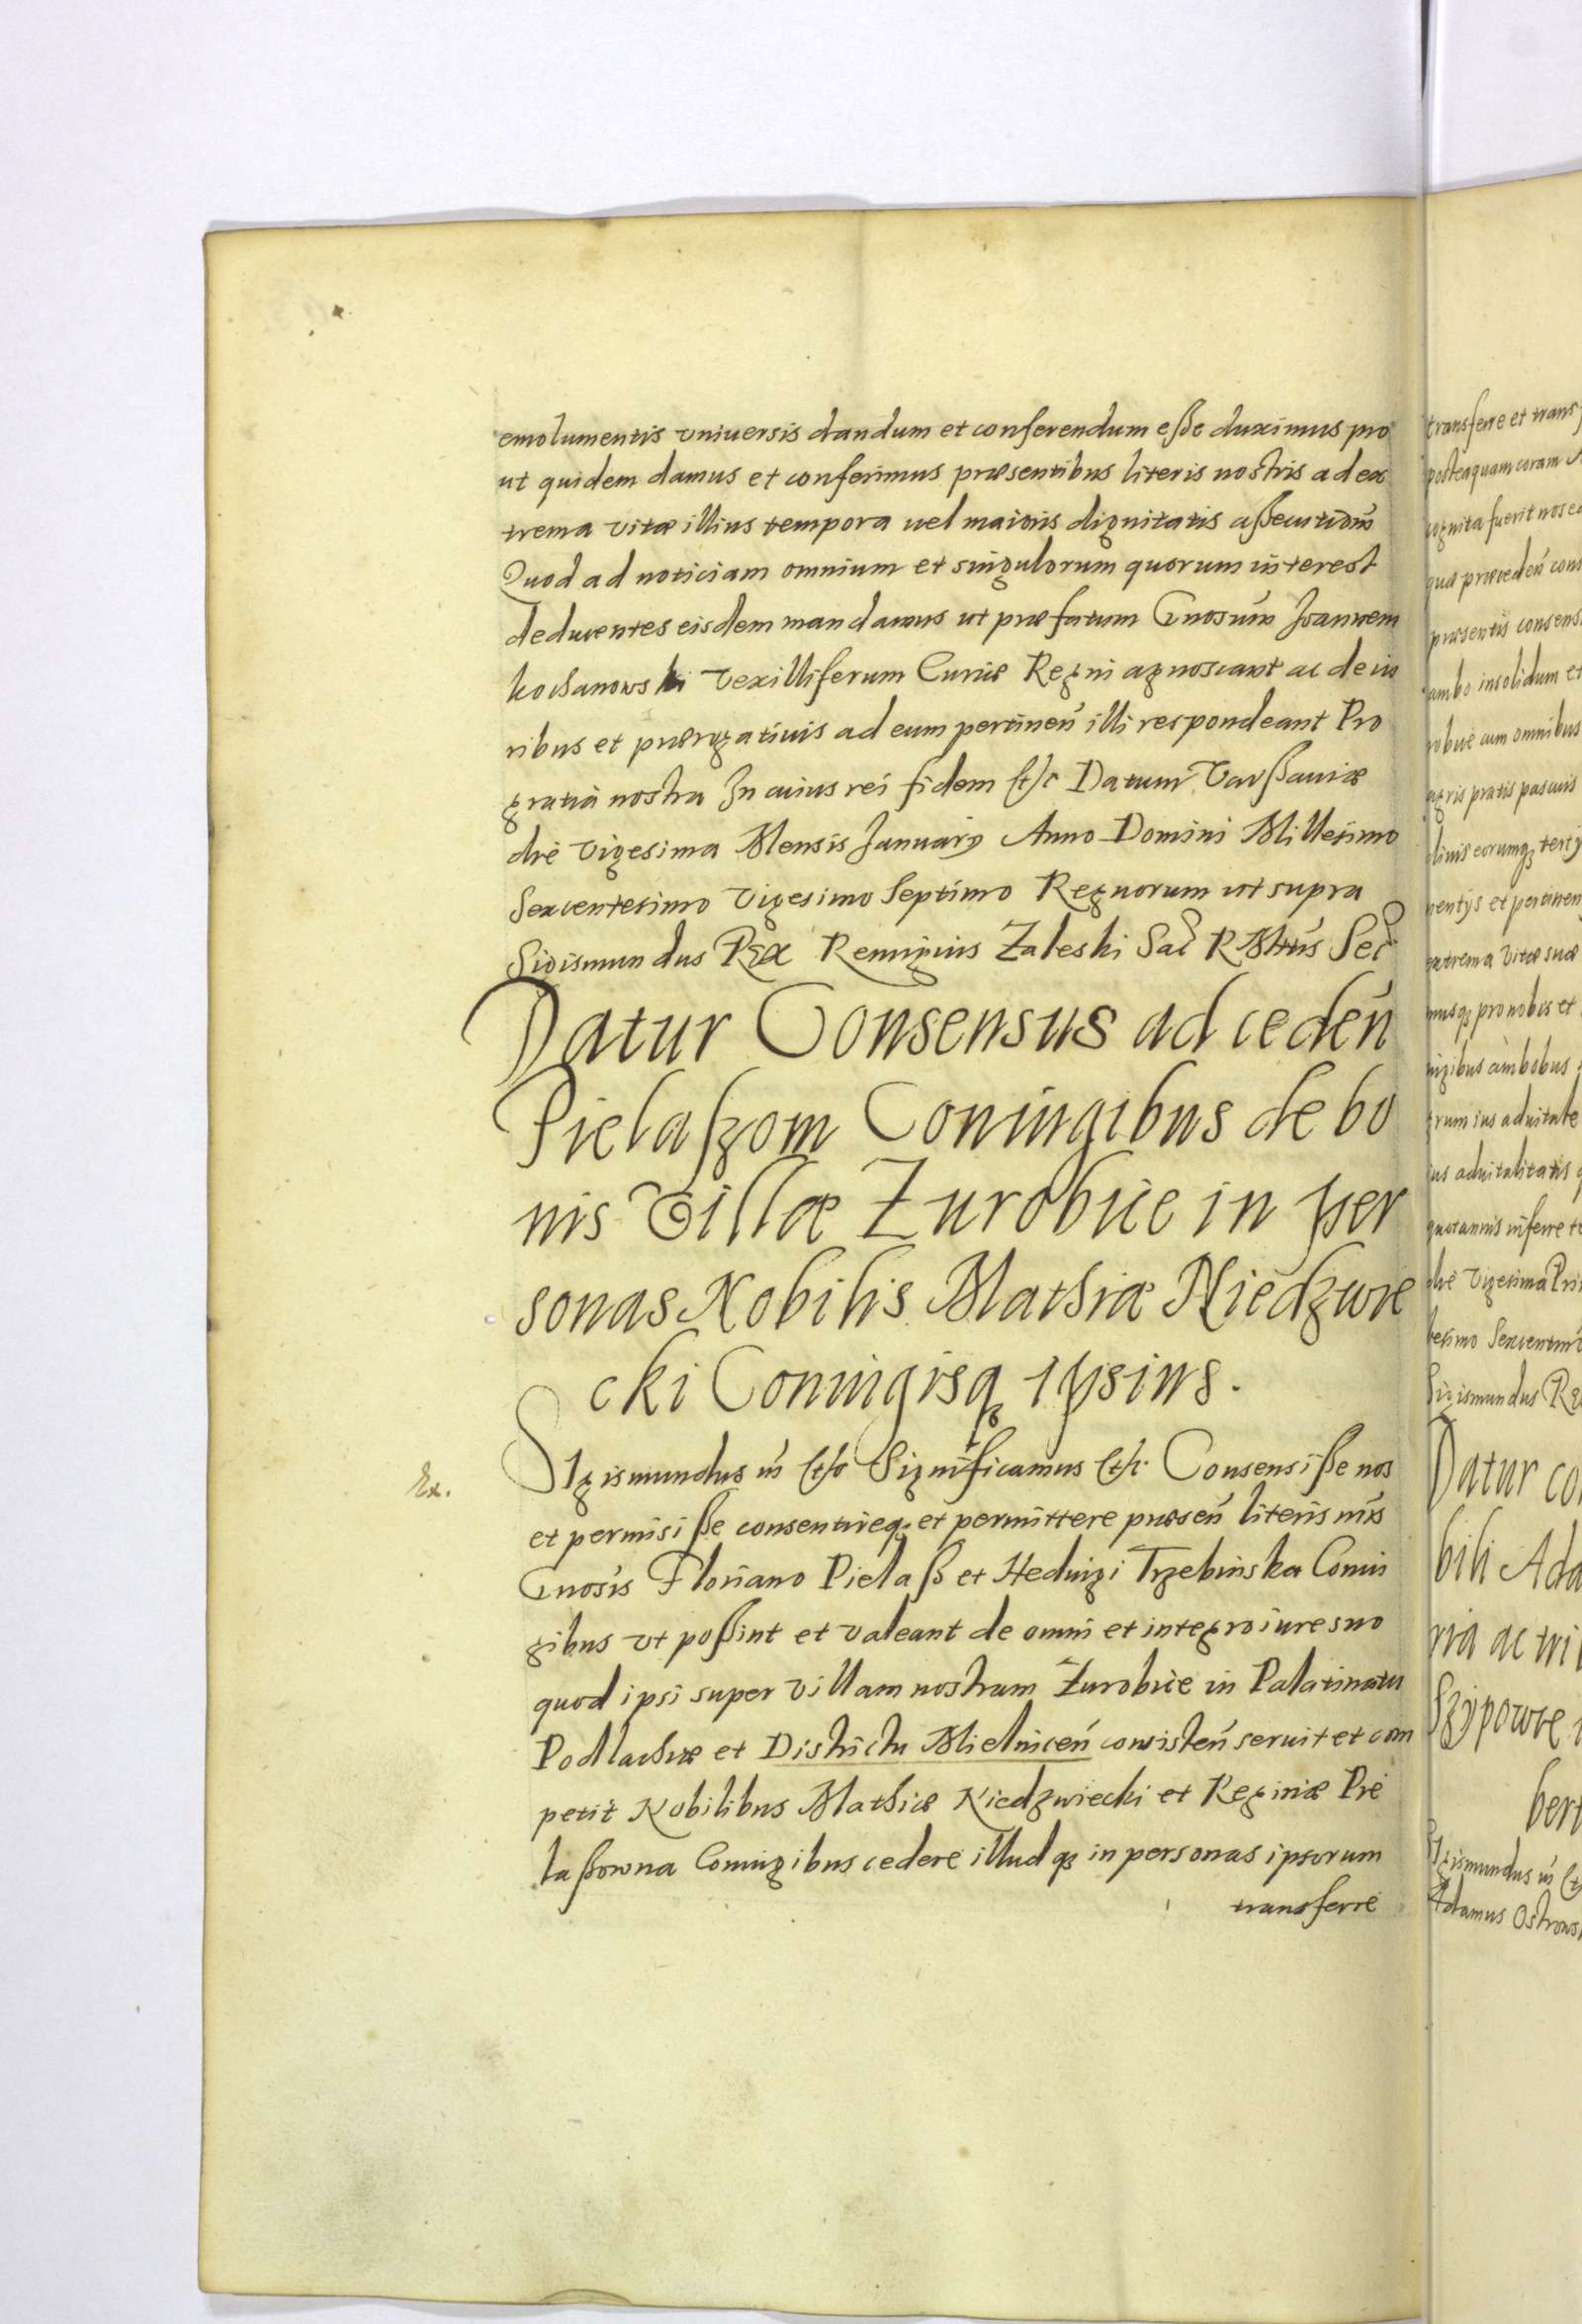 emolumentis vniuersis dandum et conferendum eße duximus pro
ut quidem damus et conferimus præsentibus literis nostris ad ex
trema vitæ illius tempora uel maioris dignitatis aßecutionis
Quod ad noticiam omnium et singulorum quorum interest
deducentes eisdem mandamus ut præfatum Gnosum Joannem
Kochanowski Vexilliferum Curiæ Regni agnoscant ac de iu
ribus et prærogatiuis ad eum pertinen̄ illi respondeant Pro
gratia nostra In cuius rei fidem etc Datum Varßauiæ
die Vigesima Mensis January Anno Domini Millesimo
Sexcentesimo Vigesimo Septimo Regnorum ut supra
Sigismundus Rex Remigius Zaleski Sac R Mttis Sec
Datur Consensus ad ceden̄
Pielaszom Coniugibus de bo
nis Villæ Zurobice in per
sonas Nobilis Mathiæ Niedzwie
cki Coniugisq ipsius.
Ex.
Sigismundus III etc Significamus etc. Consensiße nos
et permisiße consentireq et permittere præsen̄ literis nris
Gnosis Floriano Pielaß et Heduigi Trzebinska Coniu
gibus vt poßint et valeant de omni et integro iure suo
quod ipsi super Villam nostram Zurobice in Palatinatu
Podlachiæ et Districtu Mielnicen̄ consisten̄ seruit et com
petit Nobilibus Mathiæ Niedzwiecki et Reginæ Pie
laßowna Coniugibus cedere illudq in personas ipsorum
transferre
transferre et trans
posteaquam coram
cognita fuerit nos
quæ præceden̄ cons
præsentis consens
ambo insolidum et
robice cum omnibus
agris pratis pascuis
eorumq tertij
nentijs et pertinen
extrema vitæ suæ
musq pro nobis et
iugibus ambobus
trum ius aduitale
ius aduitalitatis
quotannis inferre
die Vigesima Pri
tesimo Sexcentmo
Sigismundus Rex
Datur co
bili Ada
ria ac
Szypowce
bert
Sigismundus III
Adamus Ostrows